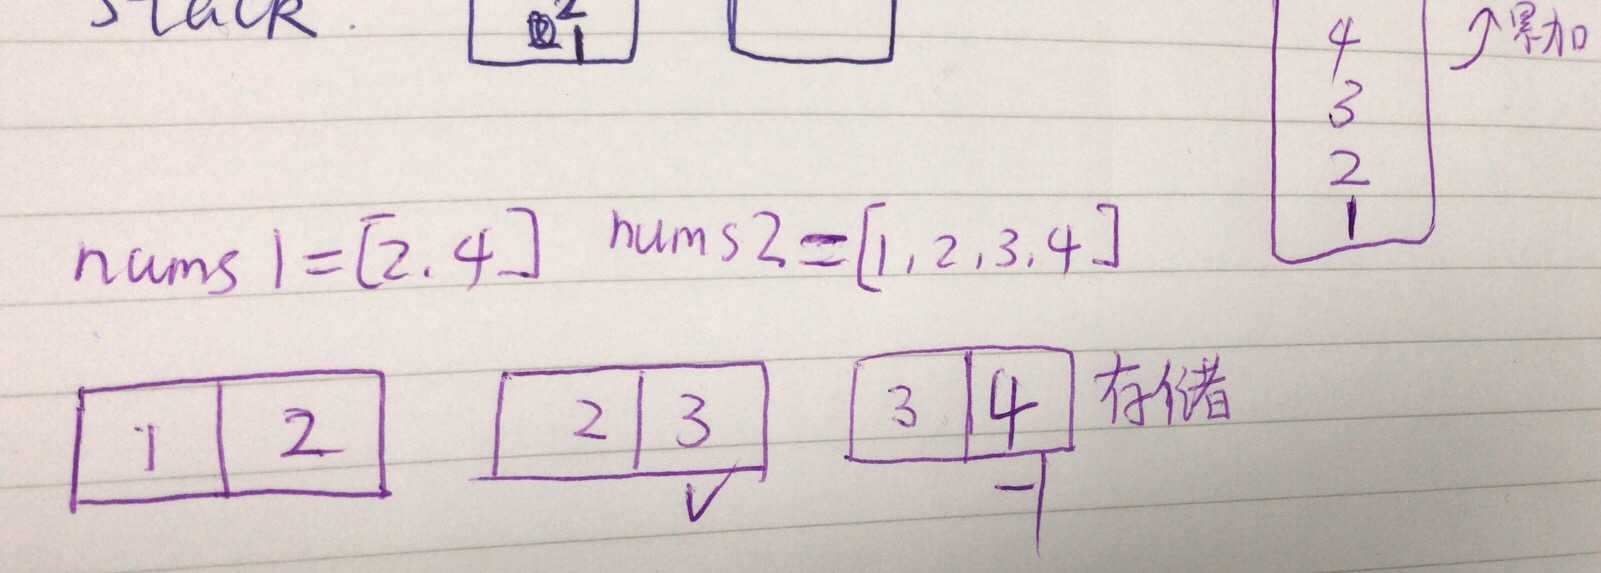 stack.
2
1
4
3
2
1
累加
nums1=[2.4] nums2=[1,2,3,4]
1 2 2 3 3 4 存储
✓ -1